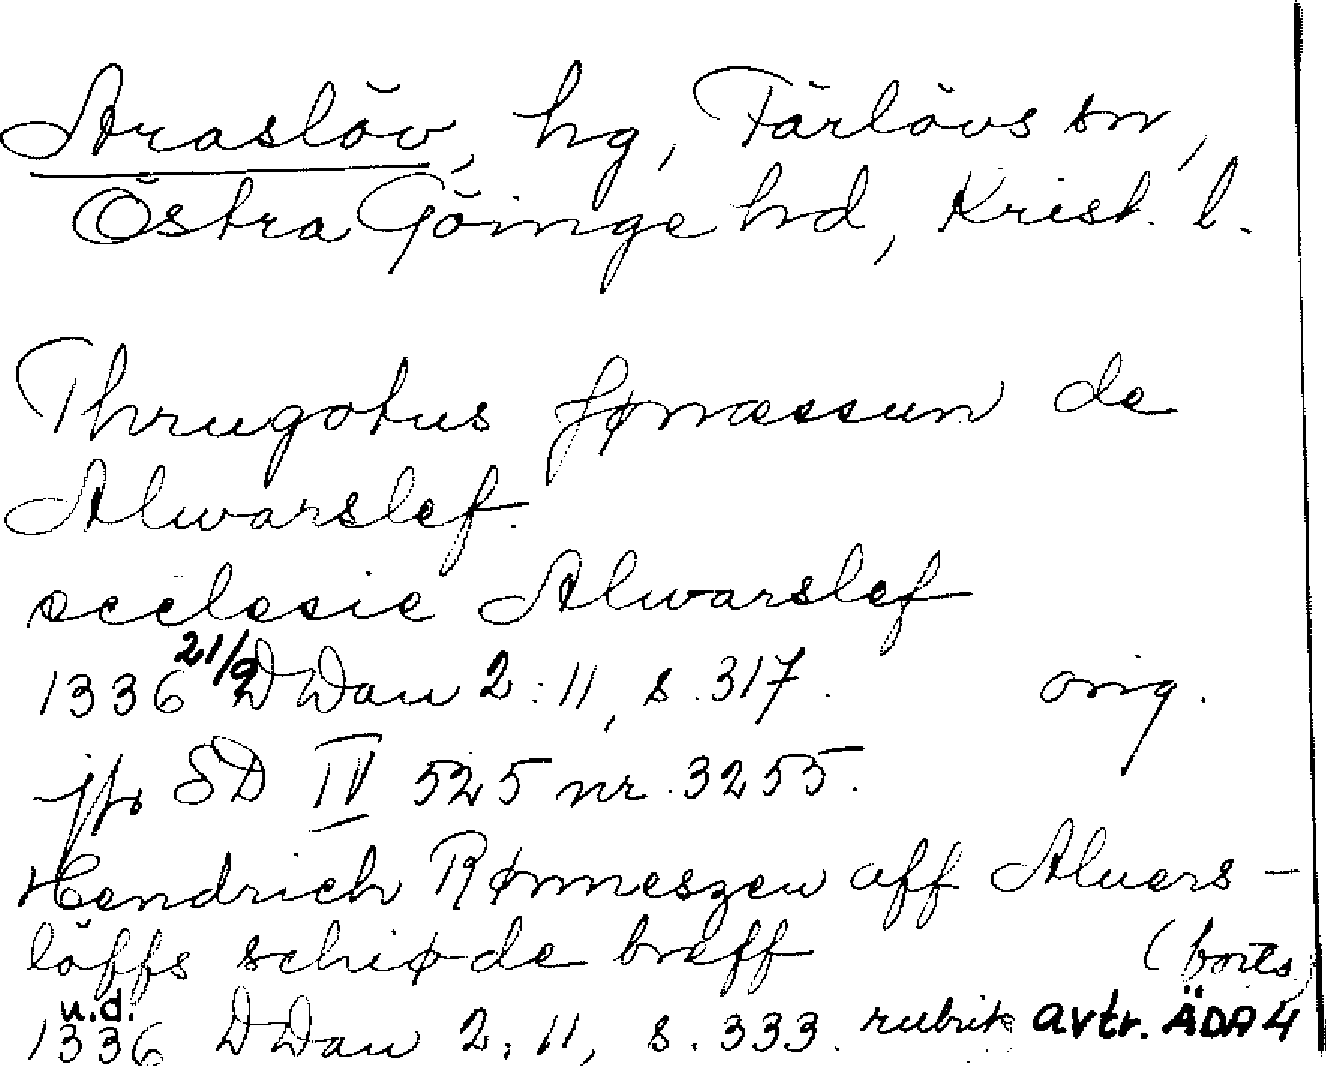 Araslöv, hg, Färlövs sn,
Östra Göinge hd, Krist. l.
Thrugotus Jønæssun de
Alwarslef.
ecclesie Alwarslef
1336 21/9 DDan 2:11, s. 317. orig.
jfr SD IV 525 nr 3255.
Hendrich Rømneszen aff Aluers-
löffs schiøde breff (forts)
1336 u.d. DDan 2:11, s. 333. rubrik avtr. ÄDA 4